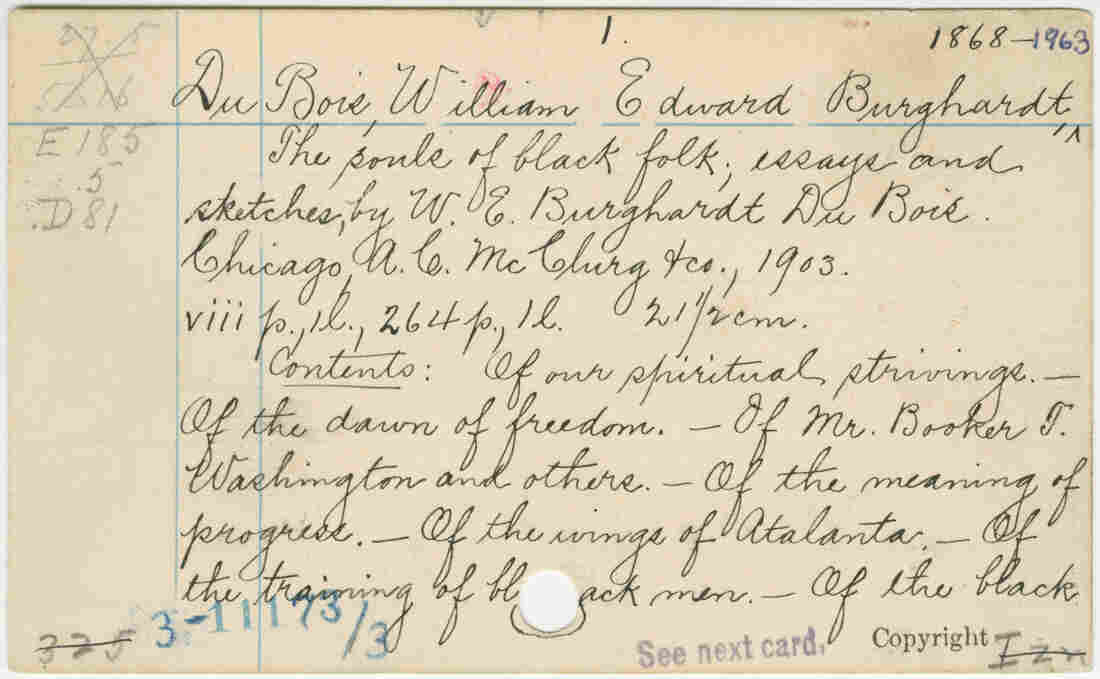 1.
1868-1963
Du Bois, William Edward Burghardt,
E185
.5
.D81
The souls of black folk; essays and
sketches, by W. E. Burghardt Du Bois.
Chicago, A. C. McClurg & co., 1903.
viii p., 1 l., 264 p., 1 l. 21 1/2 cm.
Contents: Of our spiritual strivings. —
Of the dawn of freedom. — Of Mr. Booker T.
Washington and others. — Of the meaning of
progress. — Of the wings of Atalanta. — Of
the training of black men. — Of the black
3-11173/3
325
See next card.
Copyright